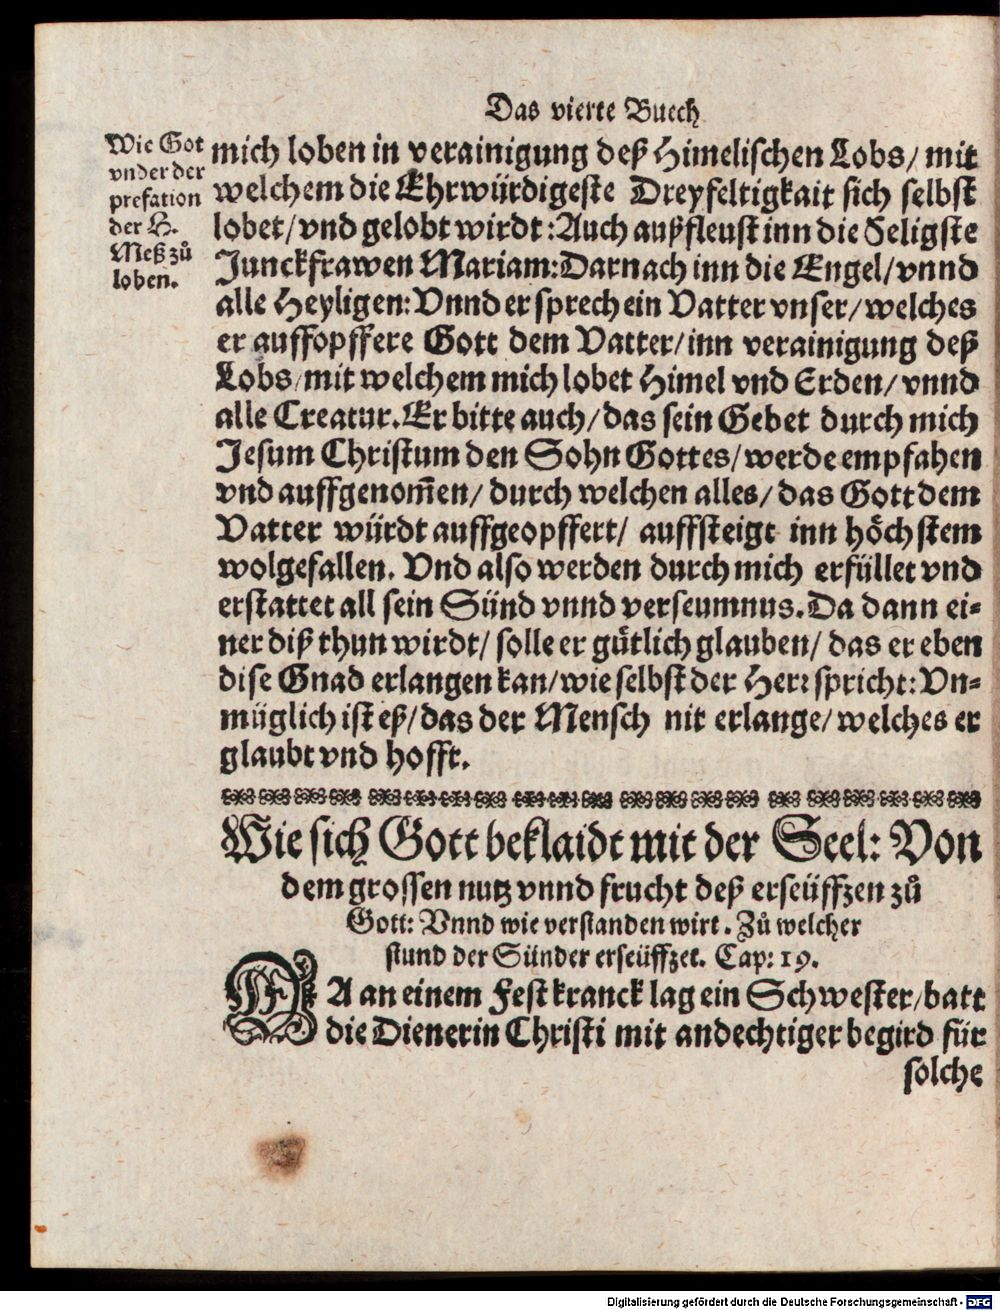 Das vierte Buech
Wie Got
vnder der
prefation
der H.
Meß zů
loben.
mich loben in verainigung deß Himelischen Lobs/ mit
welchem die Ehrwürdigeste Dreyfeltigkait sich selbst
lobet/ vnd gelobt wirdt: Auch außfleust inn die Seligste
Junckfrawen Mariam: Darnach inn die Engel/ vnnd
alle Heyligen: Vnnd er sprech ein Vatter vnser/ welches
er auffopffere Gott dem Vatter/ inn verainigung deß
Lobs/ mit welchem mich lobet Himel vnd Erden/ vnnd
alle Creatur. Er bitte auch/ das sein Gebet durch mich
Jesum Christum den Sohn Gottes/ werde empfahen
vnd auffgenom̃en/ durch welchen alles/ das Gott dem
Vatter würdt auffgeopffert/ auffsteigt inn höchstem
wolgefallen. Vnd also werden durch mich erfüllet vnd
erstattet all sein Sünd vnnd verseumnus. Da dann ei-
ner diß thun wirdt/ solle er gůtlich glauben/ das er eben
dise Gnad erlangen kan/ wie selbst der Herr spricht: Vn-
müglich ist eß/ das der Mensch nit erlange/ welches er
glaubt vnd hofft.
Wie sich Gott beklaidt mit der Seel: Von
dem grossen nutz vnnd frucht deß erseüffzen zů
Gott: Vnnd wie verstanden wirt. Zů welcher
stund der Sünder erseüffzet. Cap: 19.
DA an einem Fest kranck lag ein Schwester/ batt
die Dienerin Christi mit andechtiger begird für
solche
Digitalisierung gefördert durch die Deutsche Forschungsgemeinschaft - DFG